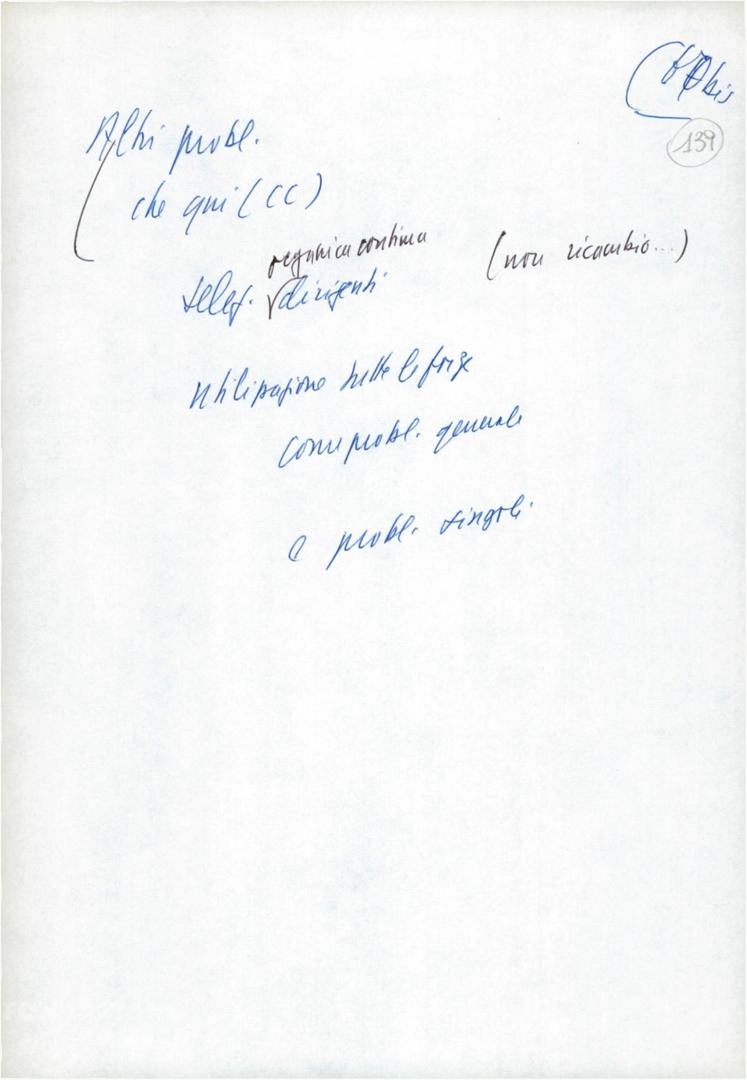 bis
139
Altri probl.
che qui (CC)
organica continua (non ricambio...)
selez. dirigenti
utilizzazione tutte le forze
come probl. generale
e probl. singoli.